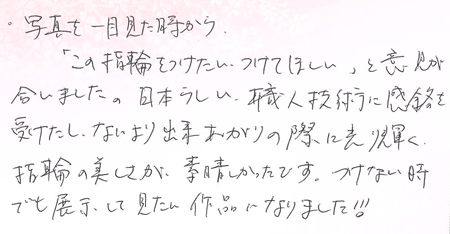 ・写真を一目見た時から、
「この指輪をつけたい、つけてほしい」と意見が
合いました。日本らしい、職人技術に感銘を
受けたし、なにより出来あがりの際に光り輝く
指輪の美しさが、素晴しかったです。つけない時
でも展示して見たい作品になりました!!!